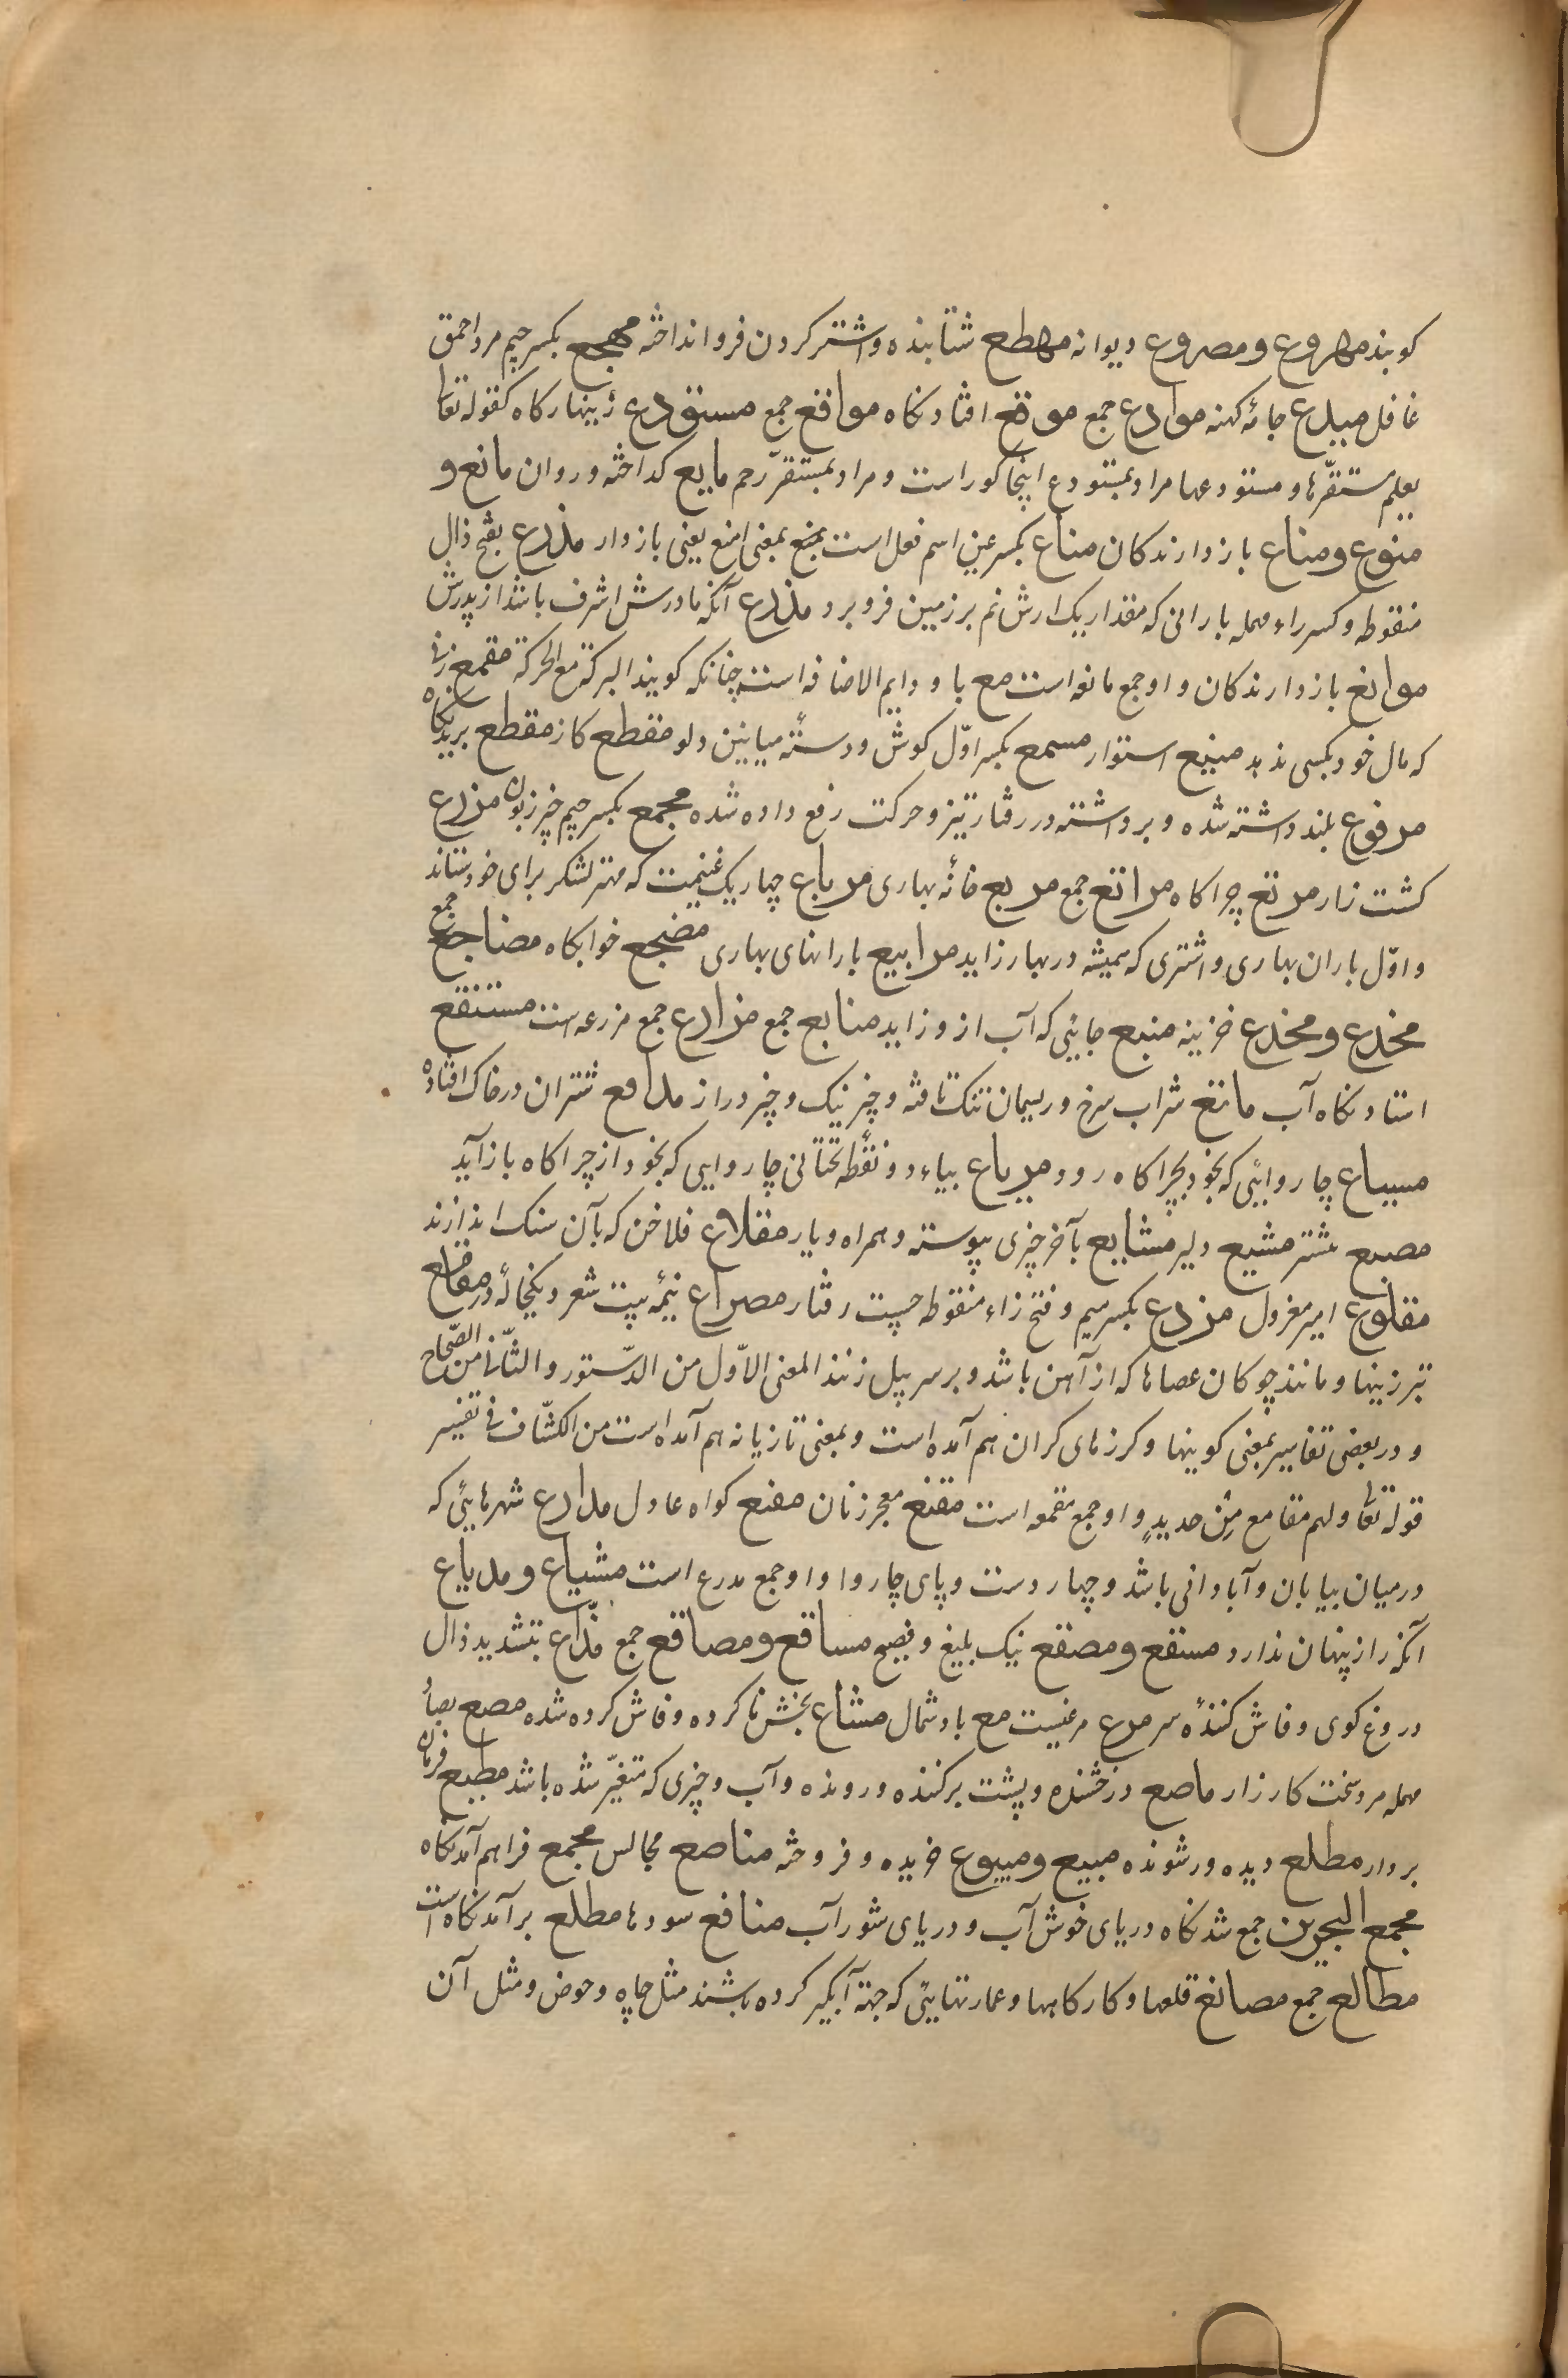 کویند مهروع و مصروع دیوانه مهطع شتابنده و اشتر کردن فرو انداخته مهجع بکسر جیم مرد احمق
غافل میدع جامٔه کهنه موادع جمع موقع افتادنکاه مواقع جمع مستودع زینهارکاه کقوله تعالی
یعلم مستقرّها و مستودعها مراد بمستودع اینجا کور است و مراد بمستقرّ رحم مایع کداخته و روان مانع و
منوع و مناع بازدارندکان مناع بکسر عین اسم فعل است بمنع بمعنی امنع یعنی بازدار مذرع بفتح ذال
منقوطه و کسر راء مهمله بارانی که مقدار یک ارش نم بر زمین فرو برد مذرع آنکه مادرش اشرف باشد از پدرش
موانع بازدارندکان و او جمع مانعه است مع با و دایم الاضافه است چنانکه کویند البرکة مع الحرکة
که مال خود بکسی ندهد منیع استوار مسمع بکسر اوّل کوش و دستٔه میانین دلو مقطع کاز مقطع بریدنکاه
مرفوع بلند داشته شده و برداشته در رفتار تیز و حرکت رفع داده شده مجمع بکسر جیم خبز زبون مزرع
کشت زار مرتع چراکاه مراتع جمع مربع خانٔه بهاری مرباع چهار یک غنیمت که مهتر لشکر برای خود ستاند
و اوّل باران بهاری و اشتری که همیشه در بهار زاید مرابیع بارانهای بهاری مضجع خوابکاه مضاجع جمع
مخدع و مخدع خزینه منبع جایٔی که آب ازو زاید منابع جمع مزارع جمع مزرعه است مستنقع
استادنکاه آب ماتع شراب سرخ و ریسمان تنک تافته و چیز نیک و چیز دراز مدافع شتران در خاک افتاده
مسیاع چاروایٔی که بخود بچراکاه رود مریاع بیاء دو نقطه تحتانی چاروایی که بخود از چراکاه باز آید
مصبع مشتر مشیع دلیر مشایع بآخر چیزی پیوسته و همراه و یار مقلاع فلاخن که بآن سنک اندازند
مقلوع امیر معزول مزدع بکسر میم و فتح زاء منقوطه چست رفتار مصراع نیٔمه بیت شعر و یکخانٔه در مقامع
تبرزینها و مانند چوکان عصاها که از آهن باشد و بر سر پیل زنند المعنی الاوّل من الدّستور و الثّانی من الصّحاح
و در بعضی تفاسیر بمعنی کوبینها و کرزهای کران هم آمده است و بمعنی تازیانه هم آمده است من الکشّاف فی تفسیر
قوله تعالی و لهم مقامع من حدیدٍ و او جمع مقمعه است مقنع معجر زنان مقنع کواه عادل مدارع شهرهایٔی که
در میان بیابان و آبادانی باشد و چهار دست و پای چاروا و او جمع مدرع است مشیاع و مدیاع
آنکه راز پنهان ندارد مسقع و مصقع نیک بلیغ و فصیح مساقع و مصاقع جمع مذّاع بتشدید ذال
دروغ کوی و فاش کنندٔه سر مرع مرغیست مع باد شمال مشاع بخش ناکرده و فاش کرده شده مصع بصاد
مهمله مرد سخت کارزار ماصع درخشنده و پشت برکنده و رونده و آب و چیزی که متغیّر شده باشد مطیع فرمان
بردار مطلع دیده ور شونده مبیع و مبیوع خریده و فروخته مناصع مجالس مجمع فراهم آمدنکاه
مجمع البحرین جمع شدنکاه دریای خوش آب و دریای شور آب منافع سودها مطلع برآمدنکاه است
مطالع جمع مصانع قلعها و کارکاهها و عمارتهایٔی که جهة آبکیر کرده باشند مثل چاه و حوض و مثل آن